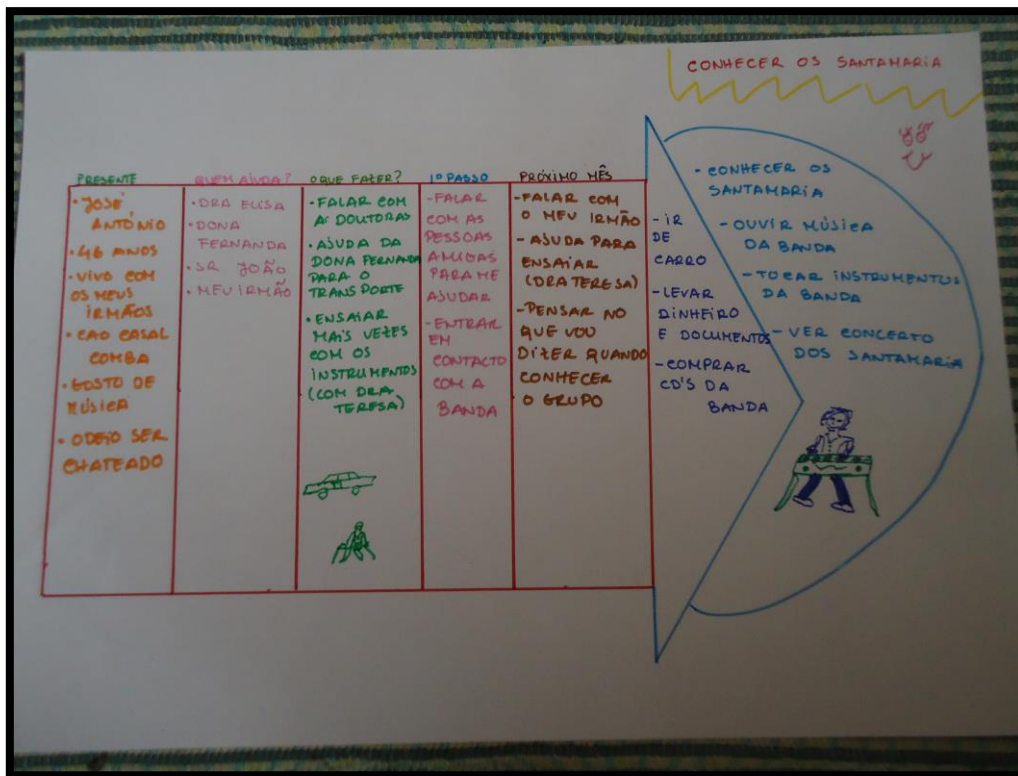 CONHECER OS SANTAMARIA
PRESENTE
• JOSÉ
ANTÓNIO
• 46 ANOS
• VIVO COM
OS MEUS
IRMÃOS
• CAO CASAL
COMBA
• GOSTO DE
MÚSICA
• ODEIO SER
CHATEADO
QUEM AJUDA?
• DRA ELISA
• DONA
FERNANDA
• SR JOÃO
• MEU IRMÃO
O QUE FAZER?
• FALAR COM
AS DOUTORAS
• AJUDA DA
DONA FERNANDA
PARA O
TRANSPORTE
• ENSAIAR
MAIS VEZES
COM OS
INSTRUMENTOS
(COM DRA
TERESA)
1º PASSO
- FALAR
COM AS
PESSOAS
AMIGAS
PARA ME
AJUDAR
- ENTRAR
EM
CONTACTO
COM A
BANDA
PRÓXIMO MÊS
- FALAR COM
O MEU IRMÃO
- AJUDA PARA
ENSAIAR
(DRA TERESA)
- PENSAR NO
QUE VOU
DIZER QUANDO
CONHECER
O GRUPO
- IR
DE
CARRO
- LEVAR
DINHEIRO
E DOCUMENTOS
- COMPRAR
CD'S DA
BANDA
- CONHECER OS
SANTAMARIA
- OUVIR MÚSICA
DA BANDA
- TOCAR INSTRUMENTOS
DA BANDA
- VER CONCERTO
DOS SANTAMARIA